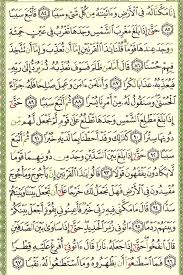 إِنَّا مَكَّنَّا لَهُۥ فِى ٱلْأَرْضِ وَءَاتَيْنَٰهُ مِن كُلِّ شَىْءٍ سَبَبًا ٨٤ فَأَتْبَعَ سَبَبًا
٨٥ حَتَّىٰٓ إِذَا بَلَغَ مَغْرِبَ ٱلشَّمْسِ وَجَدَهَا تَغْرُبُ فِى عَيْنٍ حَمِئَةٍ
وَوَجَدَ عِندَهَا قَوْمًا قُلْنَا يَٰذَا ٱلْقَرْنَيْنِ إِمَّآ أَن تُعَذِّبَ وَإِمَّآ أَن تَتَّخِذَ
فِيهِمْ حُسْنًا ٨٦ قَالَ أَمَّا مَن ظَلَمَ فَسَوْفَ نُعَذِّبُهُۥ ثُمَّ يُرَدُّ إِلَىٰ رَبِّهِۦ
فَيُعَذِّبُهُۥ عَذَابًا نُّكْرًا ٨٧ وَأَمَّا مَنْ ءَامَنَ وَعَمِلَ صَٰلِحًا فَلَهُۥ جَزَآءً
ٱلْحُسْنَىٰ وَسَنَقُولُ لَهُۥ مِنْ أَمْرِنَا يُسْرًا ٨٨ ثُمَّ أَتْبَعَ سَبَبًا ٨٩ حَتَّىٰٓ
إِذَا بَلَغَ مَطْلِعَ ٱلشَّمْسِ وَجَدَهَا تَطْلُعُ عَلَىٰ قَوْمٍ لَّمْ نَجْعَل لَّهُم مِّن
دُونِهَا سِتْرًا ٩٠ كَذَٰلِكَ وَقَدْ أَحَطْنَا بِمَا لَدَيْهِ خُبْرًا ٩١ ثُمَّ أَتْبَعَ
سَبَبًا ٩٢ حَتَّىٰٓ إِذَا بَلَغَ بَيْنَ ٱلسَّدَّيْنِ وَجَدَ مِن دُونِهِمَا قَوْمًا
لَّا يَكَادُونَ يَفْقَهُونَ قَوْلًا ٩٣ قَالُوا۟ يَٰذَا ٱلْقَرْنَيْنِ إِنَّ يَأْجُوجَ وَمَأْجُوجَ
مُفْسِدُونَ فِى ٱلْأَرْضِ فَهَلْ نَجْعَلُ لَكَ خَرْجًا عَلَىٰٓ أَن تَجْعَلَ بَيْنَنَا وَبَيْنَهُمْ
سَدًّا ٩٤ قَالَ مَا مَكَّنِّى فِيهِ رَبِّى خَيْرٌ فَأَعِينُونِى بِقُوَّةٍ أَجْعَلْ بَيْنَكُمْ
وَبَيْنَهُمْ رَدْمًا ٩٥ ءَاتُونِى زُبَرَ ٱلْحَدِيدِ حَتَّىٰٓ إِذَا سَاوَىٰ بَيْنَ ٱلصَّدَفَيْنِ
قَالَ ٱنفُخُوا۟ حَتَّىٰٓ إِذَا جَعَلَهُۥ نَارًا قَالَ ءَاتُونِىٓ أُفْرِغْ عَلَيْهِ قِطْرًا
٩٦ فَمَا ٱسْطَٰعُوٓا۟ أَن يَظْهَرُوهُ وَمَا ٱسْتَطَٰعُوا۟ لَهُۥ نَقْبًا ٩٧